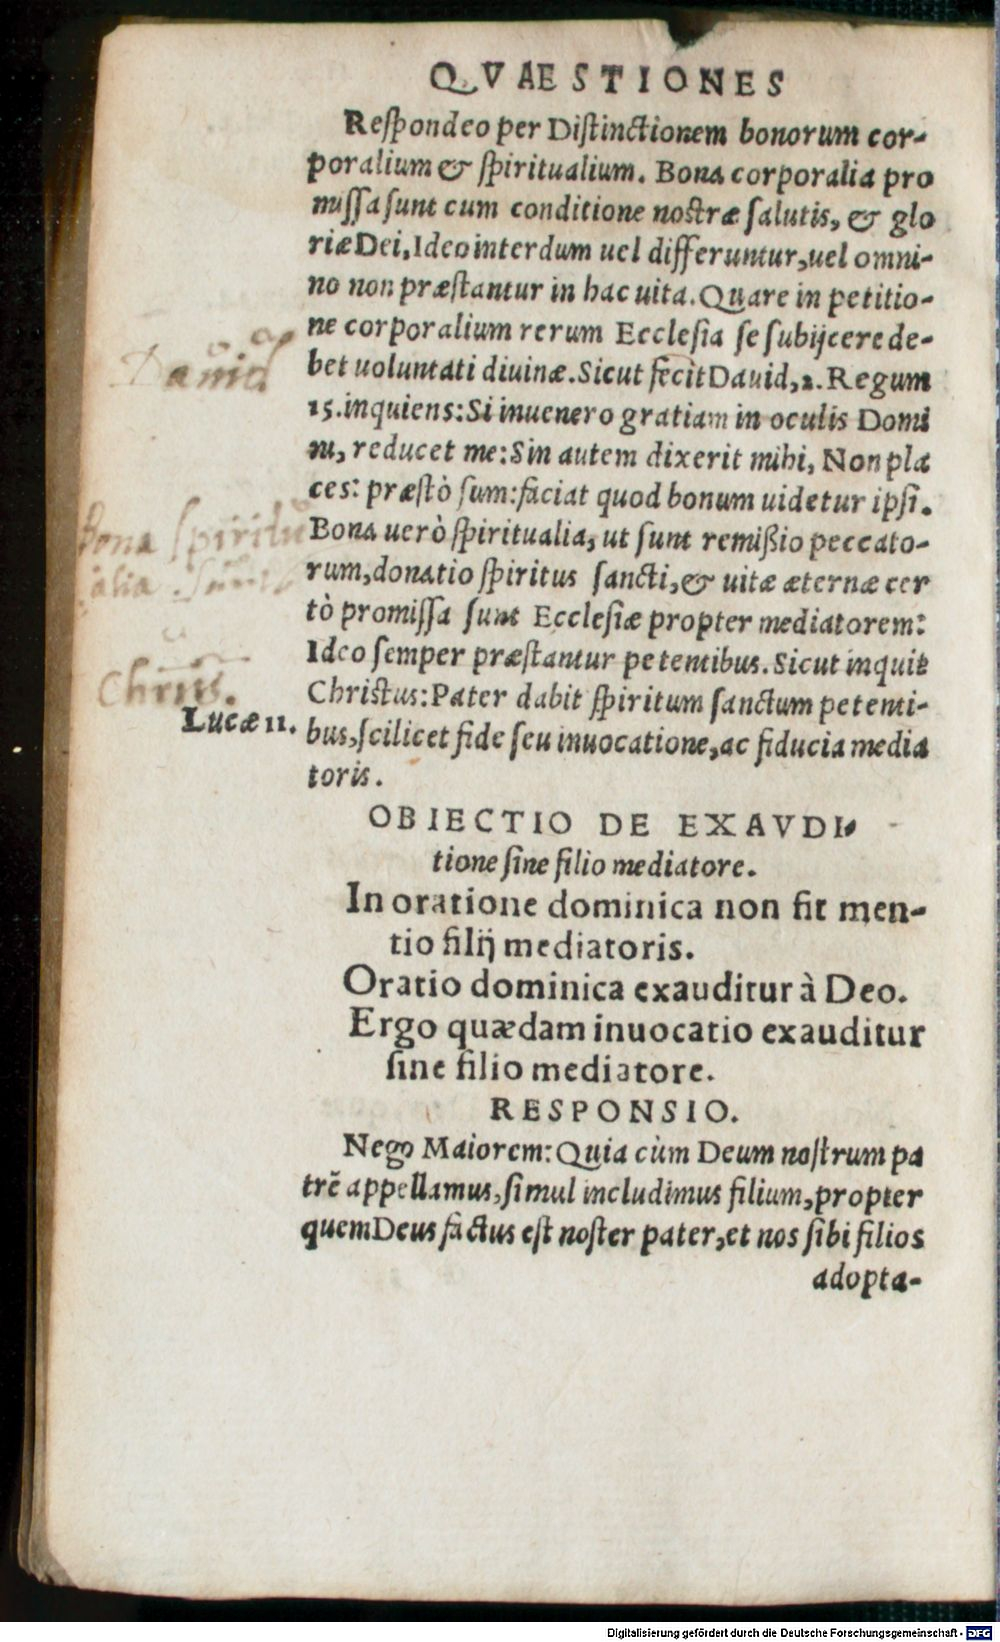 QVAESTIONES
Reſpondeo per Diſtinctionem bonorum cor-
poralium & ſpiritualium. Bona corporalia pro
miſſa ſunt cum conditione noſtræ ſalutis, & glo
riæ Dei, Ideo interdum uel differuntur, uel omni-
no non præſtantur in hac uita. Quare in petitio-
ne corporalium rerum Eccleſia ſe ſubijcere de-
bet uoluntati diuinæ. Sicut fecit Dauid, 2. Regum
Dauid
15. inquiens: Si inuenero gratiam in oculis Domi
ni, reducet me: Sin autem dixerit mihi, Non pla
ces: præſtò ſum: faciat quod bonum uidetur ipſi.
Bona uerò ſpiritualia, ut ſunt remißio peccato-
Bona ſpiritu
rum, donatio ſpiritus ſancti, & uitæ æternæ cer
alia
tò promiſſa ſunt Eccleſiæ propter mediatorem:
Ideo ſemper præſtantur petentibus. Sicut inquit
Chriſtus: Pater dabit ſpiritum ſanctum petenti-
Lucæ 11.
bus, ſcilicet fide ſeu inuocatione, ac fiducia media
toris.
OBIECTIO DE EXAVDI-
tione ſine filio mediatore.
In oratione dominica non fit men-
tio filij mediatoris.
Oratio dominica exauditur à Deo.
Ergo quædam inuocatio exauditur
ſine filio mediatore.
RESPONSIO.
Nego Maiorem: Quia cùm Deum noſtrum pa
trē appellamus, ſimul includimus filium, propter
quem Deus factus eſt noſter pater, et nos ſibi filios
adopta-
Digitalisierung gefördert durch die Deutsche Forschungsgemeinschaft - DFG